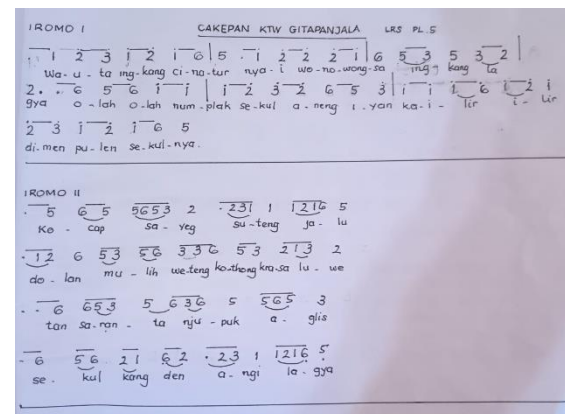 IROMO I CAKEPAN KTW GITAPANJALA LRS PL.5
. i 2 3 i 2 i 6 | 5 . i 2 2 2 i | 6 5 3 5 3 2 |
Wa - u - ta ing-kang ci-na-tur nya-i wo-no-wong-sa ing kang ta
2 . . 6 5 6 i i | i 2 3 2 6 5 3 | i i i 6 i 2 i
gya o - lah o-lah num-plak se-kul a-neng i-yan ka-i-lir i-lir
2 3 i 2 i 6 5
di-men pu-len se-kul-nya.
IROMO II
. 5 6 5 5653 2 . 231 1 1216 5
Ko - cap sa - yeg su-teng ja - lu
. 12 6 53 56 336 53 213 2
do - lan mu - lih we-teng ko-thong kra-sa lu - we
. . 6 653 5 636 5 565 3
tan sa-ran - ta nju-puk a - glis
. 6 56 21 62 . 23 1 1216 5
se - kul kang den a - ngi la - gya